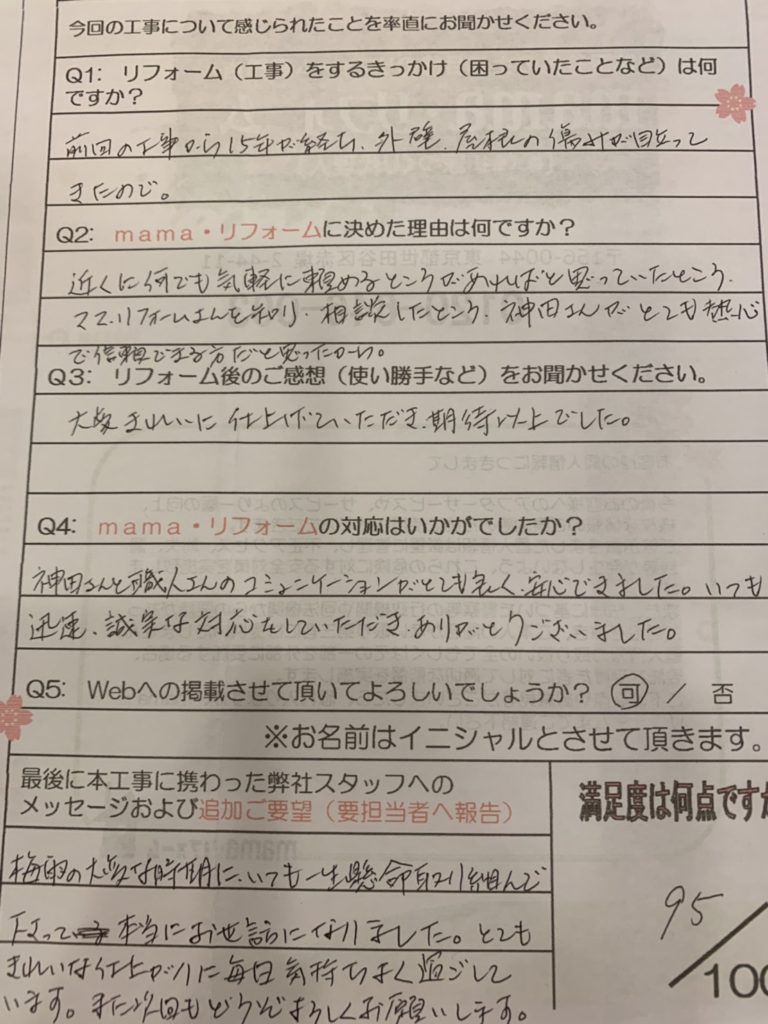 今回の工事について感じられたことを率直にお聞かせください。
Q1: リフォーム（工事）をするきっかけ（困っていたことなど）は何
ですか？
前回の工事から15年が経ち、外壁、屋根の傷みが目立って
きたので。
Q2: mama・リフォームに決めた理由は何ですか？
近くに何でも気軽に頼めるところがあればと思っていたところ、
ママ・リフォームさんを知り、相談したところ、神田さんがとても熱心
で信頼できる方だと思ったから。
Q3: リフォーム後のご感想（使い勝手など）をお聞かせください。
大変きれいに仕上げていただき、期待以上でした。
Q4: mama・リフォームの対応はいかがでしたか？
神田さんと職人さんのコミュニケーションがとても良く、安心できました。いつも
迅速、誠実な対応をしていただき、ありがとうございました。
Q5: Webへの掲載させて頂いてよろしいでしょうか？ 可 / 否
※お名前はイニシャルとさせて頂きます。
最後に本工事に携わった弊社スタッフへの
メッセージおよび追加ご要望（要担当者へ報告）
梅雨の大変な時期に、いつも一生懸命取り組んで
下さって 本当にお世話になりました。とても
きれいな仕上がりに毎日気持ちよく過ごして
います。また次回もどうぞよろしくお願いします。
満足度は何点ですか
95
/100